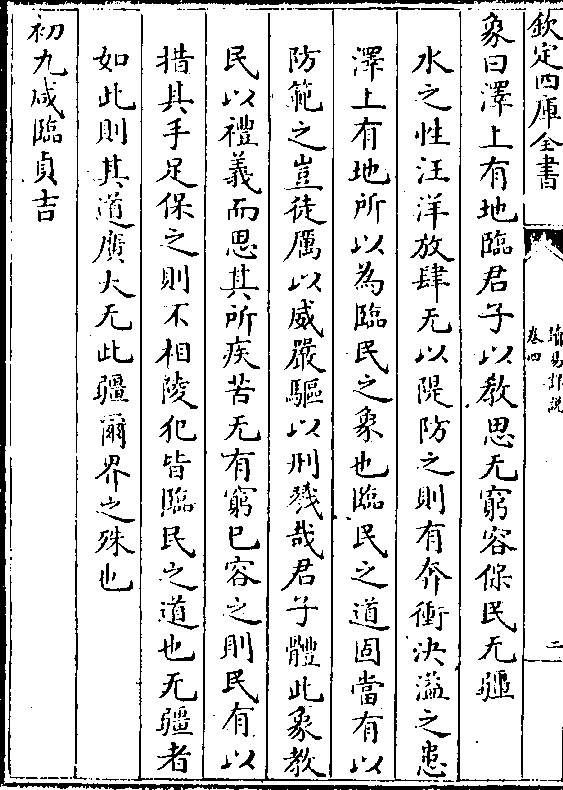 欽定四庫全書
讀易詳說
卷四
二
象曰澤上有地臨君子以教思无窮容保民无疆
水之性汪洋放肆无以隄防之則有奔衝決溢之患
澤上有地所以為臨民之象也臨民之道固當有以
防範之豈徒厲以威嚴驅以刑戮哉君子體此象教
民以禮義而思其所疾苦无有窮已容之則民有以
措其手足保之則不相陵犯皆臨民之道也无疆者
如此則其道廣大无此疆爾界之殊也
初九咸臨貞吉